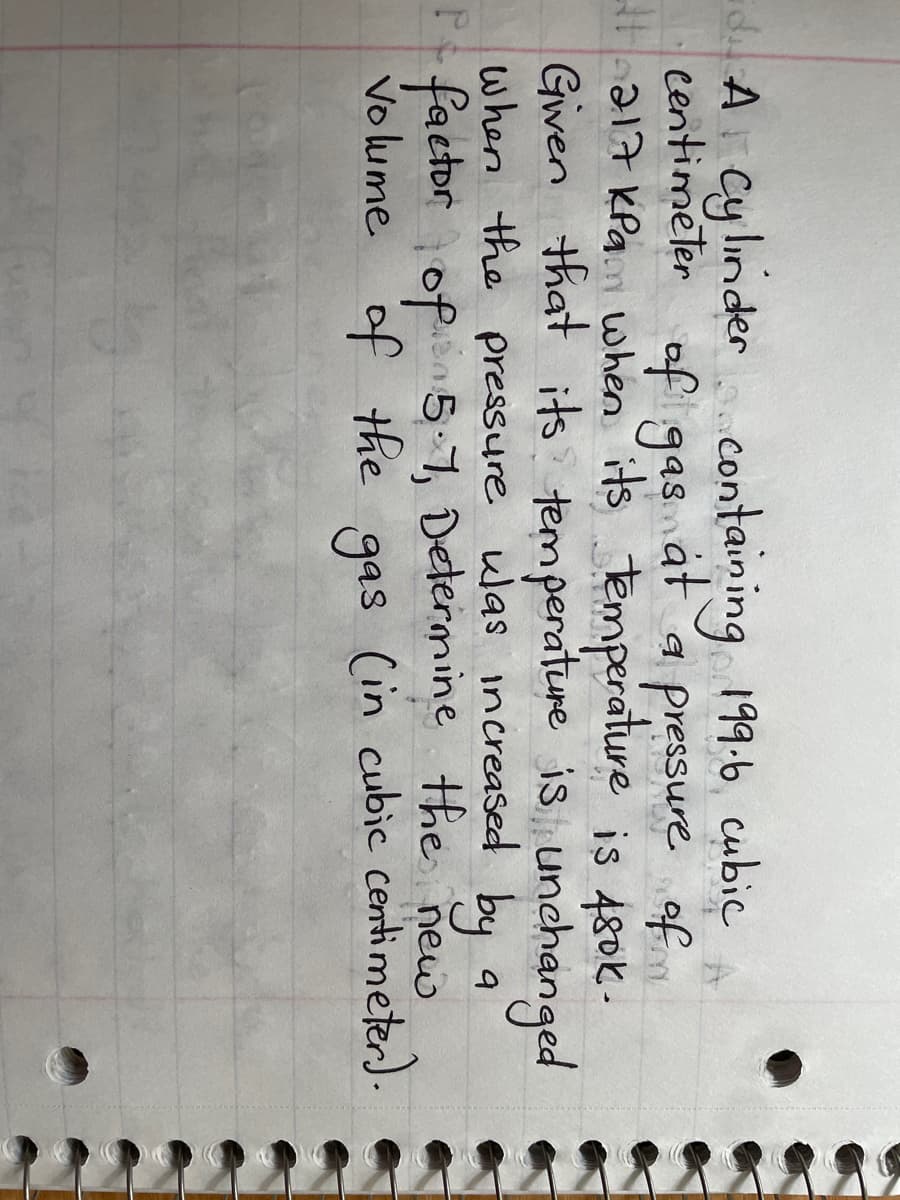 A Cylinder containing 199.6 cubic
centimeter of gas at a pressure of
217 KPa when its temperature is 480K.
Given that its temperature is unchanged
when the pressure was increased by a
factor of 5.7, Determine the new
Volume of the gas (in cubic centimeter).